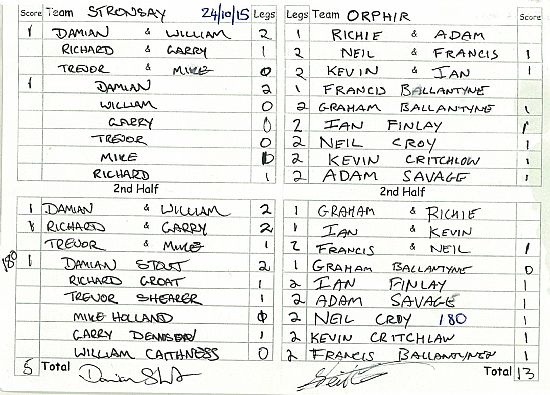 Score Team STRONSAY 24/10/15 Legs Legs Team ORPHIR Score
1 DAMIAN & WILLIAM 2 1 RICHIE & ADAM
RICHARD & GARRY 1 2 NEIL & FRANCIS 1
TREVOR & MIKE 0 2 KEVIN & IAN 1
1 DAMIAN 2 1 FRANCIS BALLANTYNE
WILLIAM 0 2 GRAHAM BALLANTYNE 1
GARRY 0 2 IAN FINLAY 1
TREVOR 0 2 NEIL CROY 1
MIKE 2 KEVIN CRITCHLOW 1
RICHARD 1 2 ADAM SAVAGE 1
2nd Half 2nd Half
1 DAMIAN & WILLIAM 2 1 GRAHAM & RICHIE
1 RICHARD & GARRY 2 1 IAN & KEVIN
TREVOR & MIKE 1 2 FRANCIS & NEIL 1
180 1 DAMIAN STOUT 2 1 GRAHAM BALLANTYNE 0
RICHARD GROAT 1 2 IAN FINLAY 1
TREVOR SHEARER 1 2 ADAM SAVAGE 1
MIKE HOLLAND 0 2 NEIL CROY 180 1
GARRY DENNISON 1 2 KEVIN CRITCHLAW 1
WILLIAM CAITHNESS 0 2 FRANCIS BALLANTYNE 1
5 Total Total 13